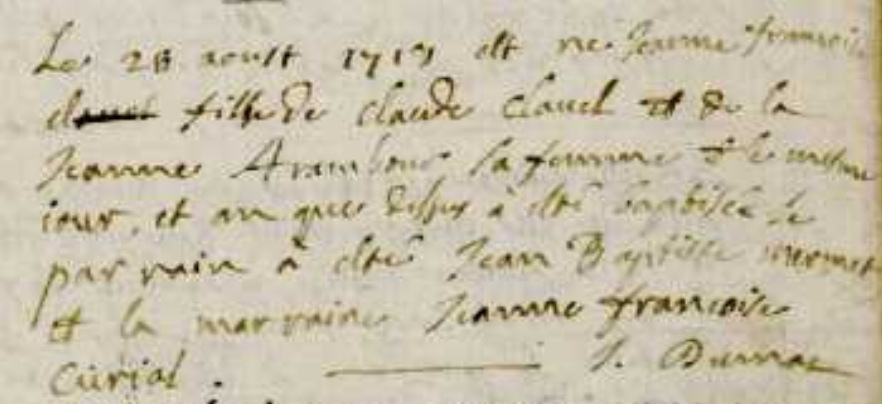 Le 28 aoust 1717 est né Jeanne françoise
clavel fille de claude Clavel et de la
Jeanne Arambour sa femme et le mesme
jour, et an que dessus à esté baptisée le
parrain à esté Jean Baptiste mermet
et la marraine Jeanne françoise
Curial. J. Dumas